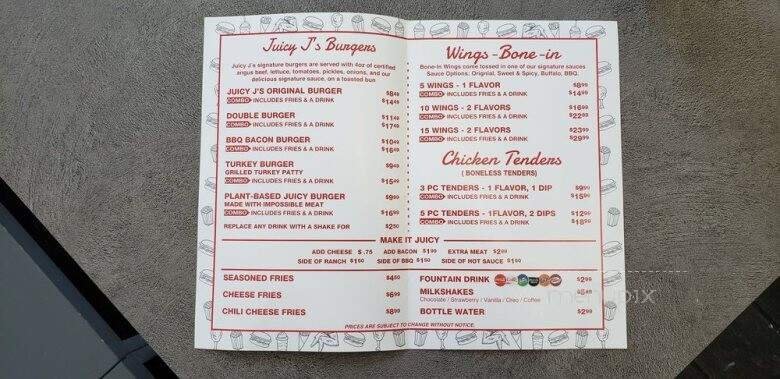 Juicy J's Burgers
Juicy J's signature burgers are served with 4oz of certified
angus beef, lettuce, tomatoes, pickles, onions, and our
delicious signature sauce, on a toasted bun
JUICY J'S ORIGINAL BURGER $8.49
COMBO INCLUDES FRIES & A DRINK $14.49
DOUBLE BURGER $11.49
COMBO INCLUDES FRIES & A DRINK $17.49
BBQ BACON BURGER $10.49
COMBO INCLUDES FRIES & A DRINK $16.49
TURKEY BURGER $9.49
GRILLED TURKEY PATTY
COMBO INCLUDES FRIES & A DRINK
PLANT-BASED JUICY BURGER $9.99
MADE WITH IMPOSSIBLE MEAT
COMBO INCLUDES FRIES & A DRINK $16.99
REPLACE ANY DRINK WITH A SHAKE FOR $2.50
Wings - Bone - in
Bone-In Wings come tossed in one of our signature sauces
Sauce Options: Orignial, Sweet & Spicy, Buffalo, BBQ.
5 WINGS - 1 FLAVOR $8.99
COMBO INCLUDES FRIES & A DRINK $14.99
10 WINGS - 2 FLAVORS $16.99
COMBO INCLUDES FRIES & A DRINK $22.99
15 WINGS - 2 FLAVORS $23.99
COMBO INCLUDES FRIES & A DRINK $29.99
Chicken Tenders
( BONELESS TENDERS)
3 PC TENDERS - 1 FLAVOR, 1 DIP $9.99
COMBO INCLUDES FRIES & A DRINK $15.99
5 PC TENDERS - 1FLAVOR, 2 DIPS $12.99
COMBO INCLUDES FRIES & A DRINK $18.99
MAKE IT JUICY
ADD CHEESE $ .75 ADD BACON $1.99 EXTRA MEAT $2.99
SIDE OF RANCH $1.50 SIDE OF BBQ $1.50 SIDE OF HOT SAUCE $1.50
SEASONED FRIES $4.50
CHEESE FRIES $6.99
CHILI CHEESE FRIES $8.99
FOUNTAIN DRINK $2.99
MILKSHAKES $5.49
Chocolate / Strawberry / Vanilla / Oreo / Coffee
BOTTLE WATER $2.99
PRICES ARE SUBJECT TO CHANGE WITHOUT NOTICE.
menupix